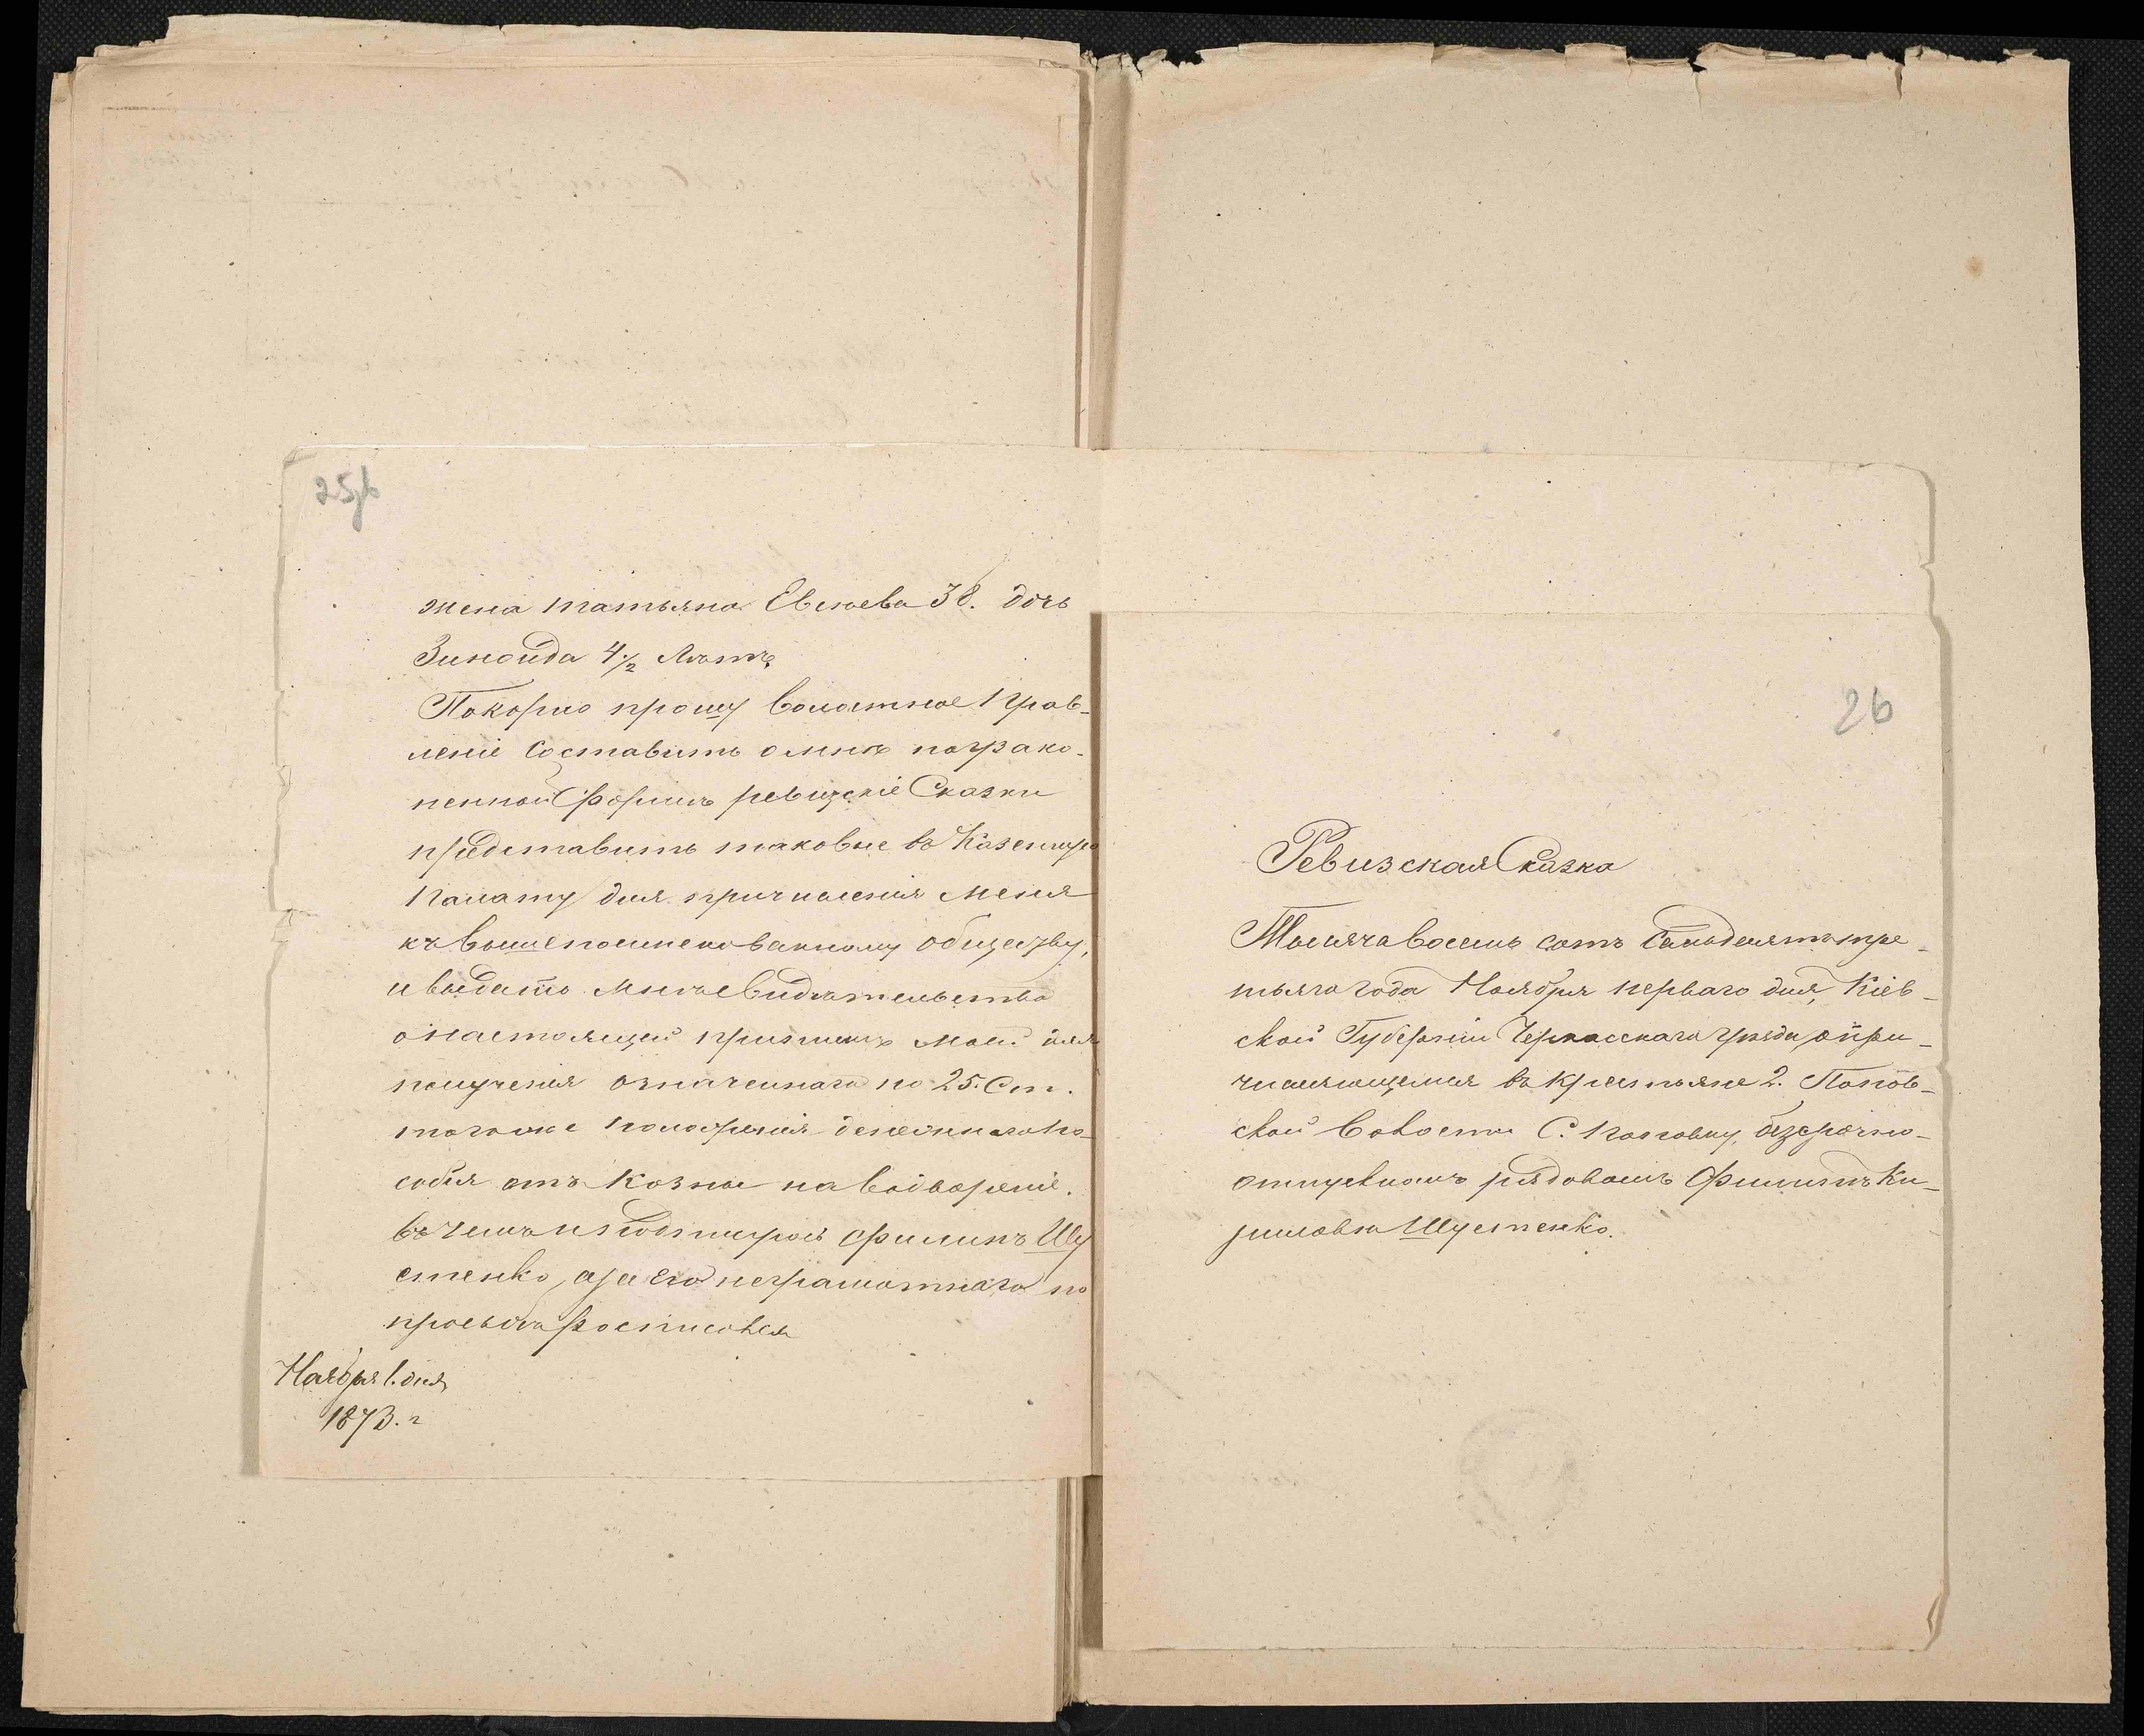 25об
жена татьяна Евсеева 38. дочь
Зиноида 4 1/2 Лѣтъ,
Покорно прошу волостное Прав-
леніе Составить о мнѣ по узако-
ненной Формѣ ревизскіе Сказки
представить таковые въ Казенную
Палату для причисленія Меня
къ вышепоименованному обществу,
и выдать мнѣ Свидѣтельство
о настоящей припискѣ моей для
получения означеннаго по 25. Ст.
того же положенія денежнаго по-
собія отъ Козны на водвореніе.
въ чемъ и подпишусь Филипъ Шу
стенко, а за его неграмотнаго по
просьбѣ росписовся
Ноября 1. дня
1873. г
26
Ревизская Сказка
Тысяча восемь сотъ Семьдесятъ тре-
тьяго года Ноября перваго дня, Кіев-
ской Губерніи Черкасскаго уѣзда, о при-
числяющемся въ крестьяне 2. Попов-
ской Волости С. Поповку, безсрочно-
отпускномъ рядовомъ Филипѣ Ки-
риловѣ Шустенко.